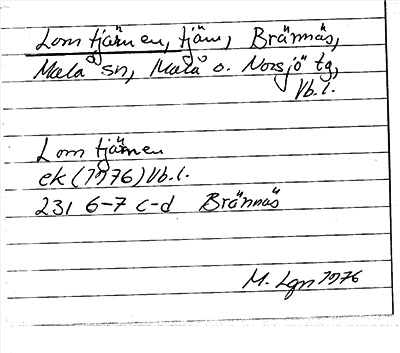 Lomtjärnen, tjärn, Brännäs,
Malå sn, Malå o. Norsjö tg,
Vb.l.
Lomtjärnen
ek (1976) Vb.l.
231 6-7 c-d Brännäs
M. Lgn 1976